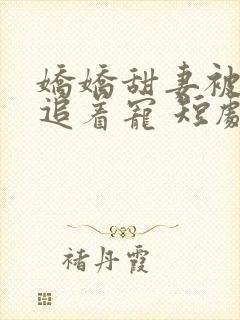 嬌嬌甜妻被
追着寵 短劇
褚丹霞